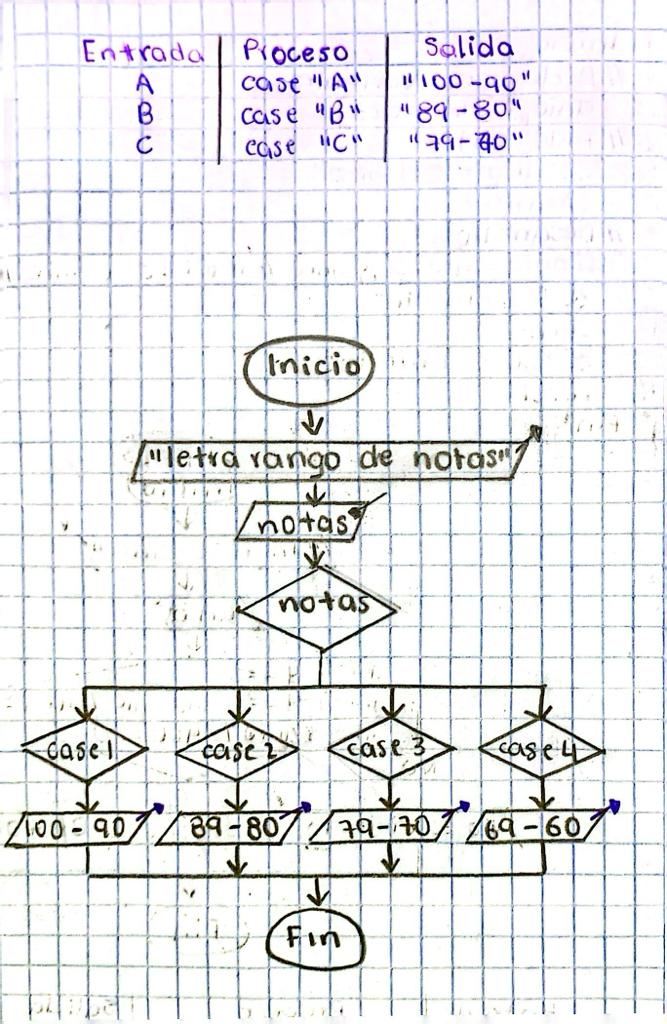 Entrada Proceso Salida
A case "A" "100-90"
B case "B" "89-80"
C case "C" "79-70"
Inicio
"letra rango de notas"
notas
notas
case 1 case 2 case 3 case 4
100-90 89-80 79-70 69-60
Fin